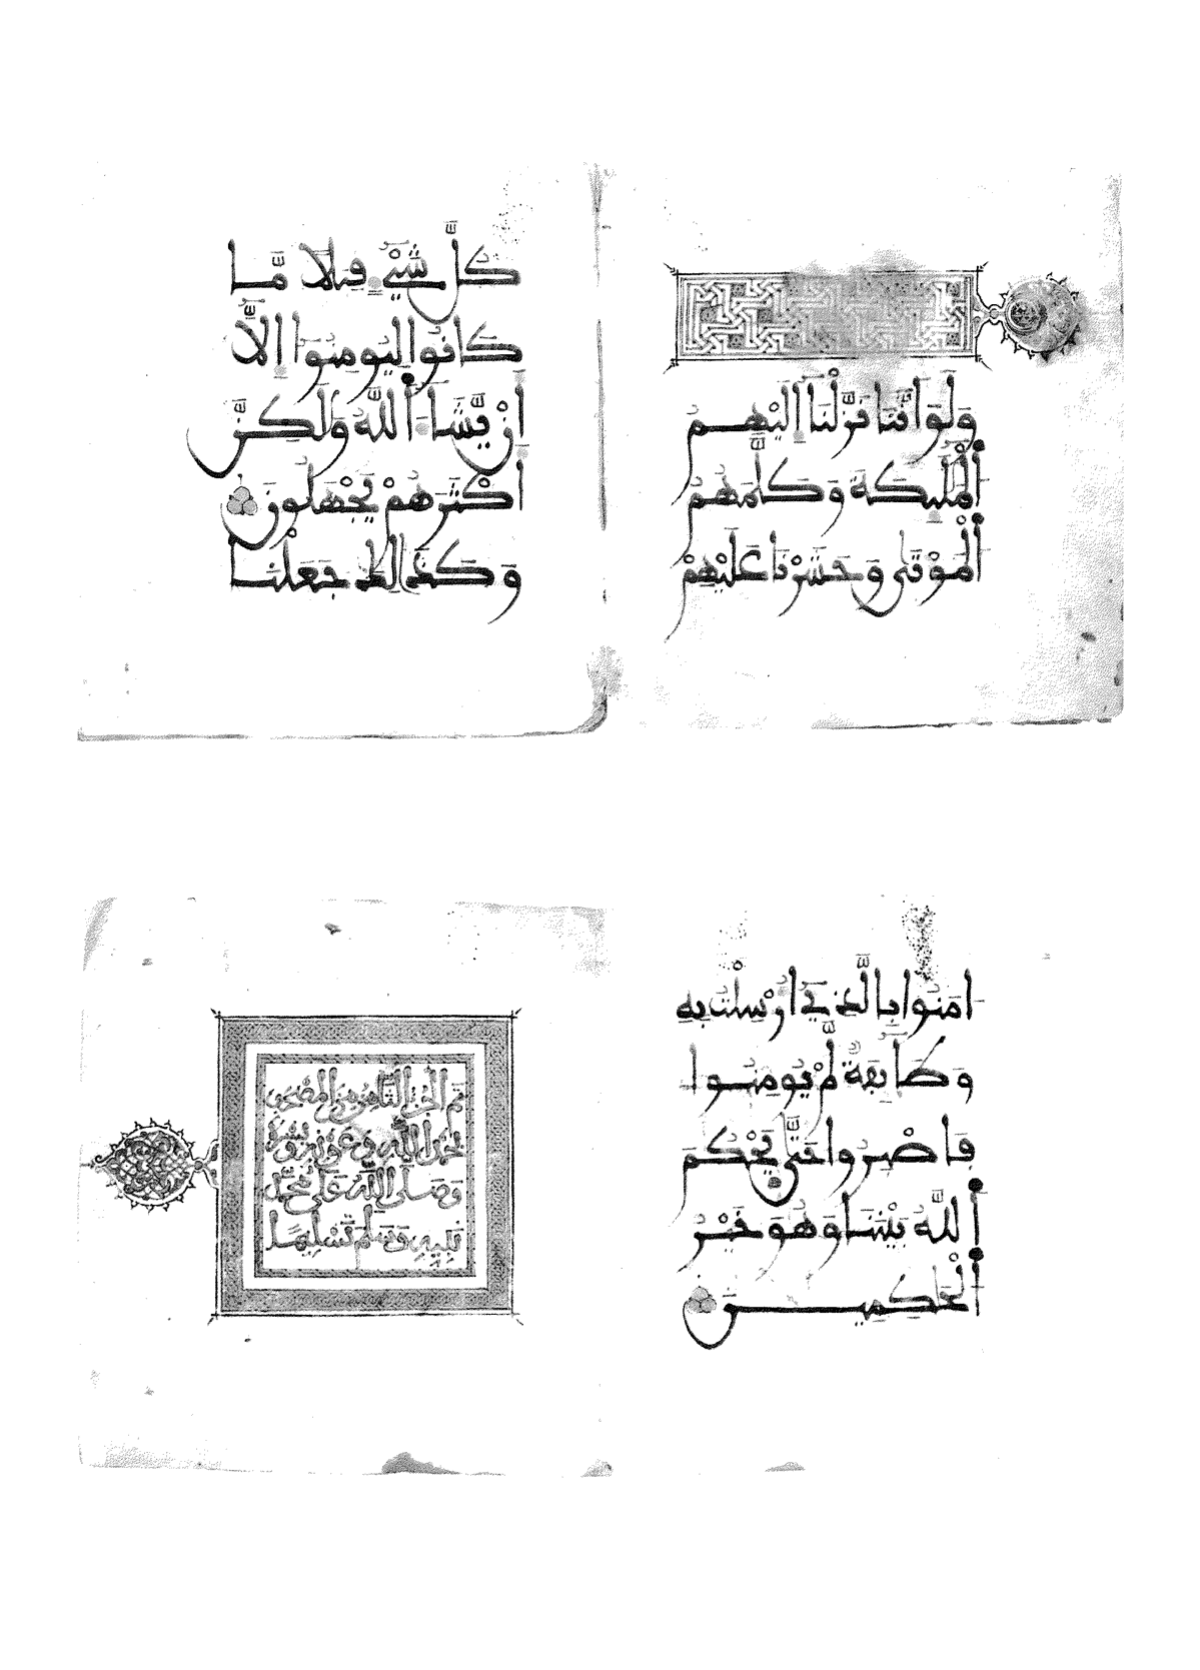 وَلَوَ اَنَّنَا نَزَّلْنَا إِلَيْهِمُ
اُ۬لْمَلَٰٓئِكَةَ وَكَلَّمَهُمُ
اُ۬لْمَوْتَىٰ وَحَشَرْنَا عَلَيْهِمْ
كُلَّ شَيْءٍ قِبَلًا مَّا
كَانُوا لِيُومِنُوا إِلَّا
أَنْ يَّشَاءَ اَ۬للَّهُ وَلَٰكِنَّ
أَكْثَرَهُمْ يَجْهَلُونَ
وَكَذَٰلِكَ جَعَلْنَا
ءَامَنُوا بِالَّذِي أُرْسِلْتُ بِهِ
وَطَآئِفَةٌ لَّمْ يُومِنُوا
فَاصْبِرُوا حَتَّىٰ يَحْكُمَ
اَ۬للَّهُ بَيْنَنَا وَهُوَ خَيْرُ
اُ۬لْحَٰكِمِينَ
تم الجزء الثامن من المصحف
بحمد الله
وصلى الله على محمد
نبيه وسلم تسليما